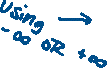 Using →
-∞ OR +∞